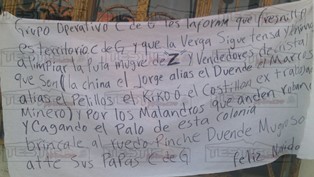 Grupo Operativo C de G les Informa que fresnillo
es territorio C de G y que la Verga Sigue tensa y venimos
a limpiar la Puta mugre de Z y Vendedores de crista
que son la china el Jorge alias el Duende el Marcos
alias el Pelillos el Kiko o el Costillon ex trabajador
Minero y Por los Malandros que anden robando
y Cagando el Palo de esta colonia
brincale al ruedo Pinche Duende Mugroso
atte Sus Papas C de G
feliz